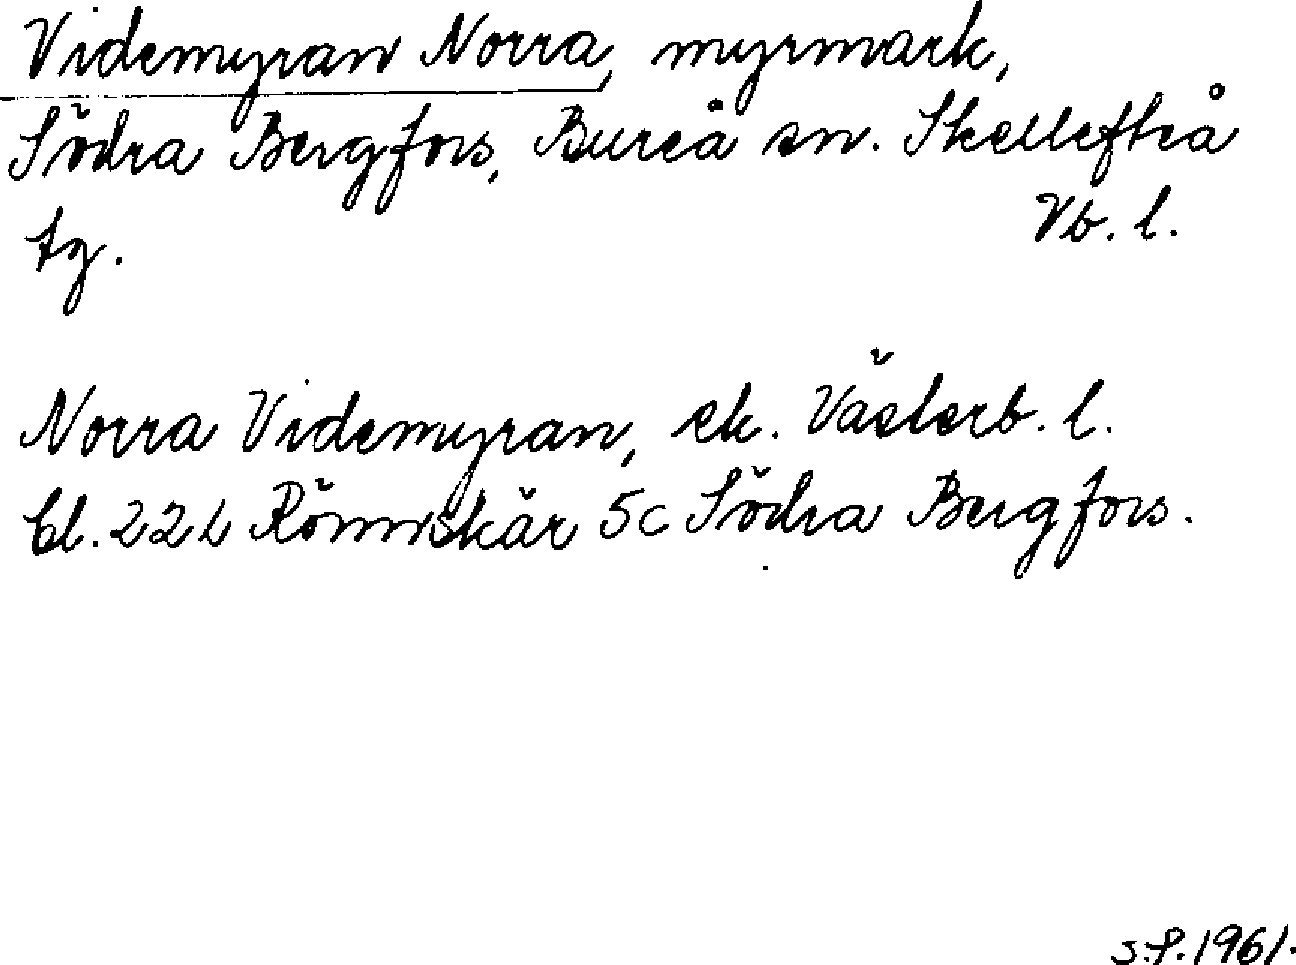 Videmyran Norra, myrmark,
Södra Bergfors, Bureå sn. Skellefteå
tg. Vb. l.
Norra Videmyran, ek. Västerb. l.
bl. 22L Rönnskär 5c Södra Bergfors.
S.P. 1961.